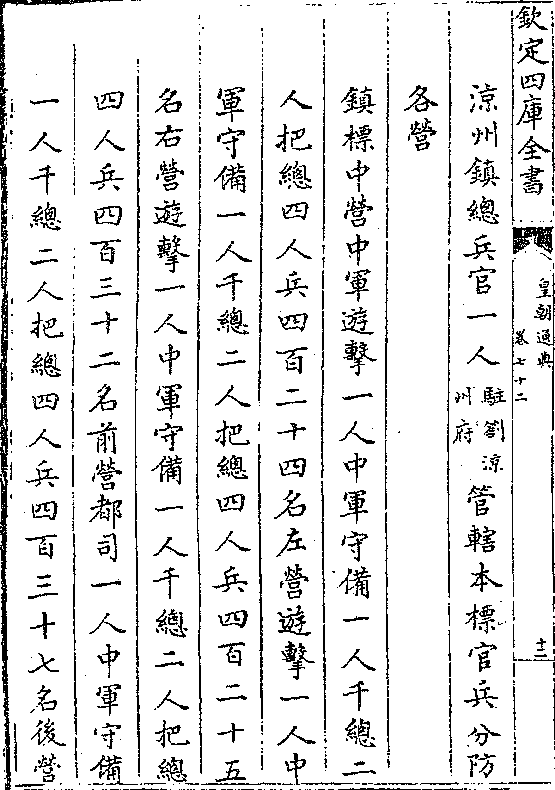 欽定四庫全書
皇朝通典
卷七十二
十二
涼州鎮總兵官一人駐劄涼州府管轄本標官兵分防
各營
鎮標中營中軍遊擊一人中軍守備一人千總二
人把總四人兵四百二十四名左營遊擊一人中
軍守備一人千總二人把總四人兵四百二十五
名右營遊擊一人中軍守備一人千總二人把總
四人兵四百三十二名前營都司一人中軍守備
一人千總二人把總四人兵四百三十七名後營